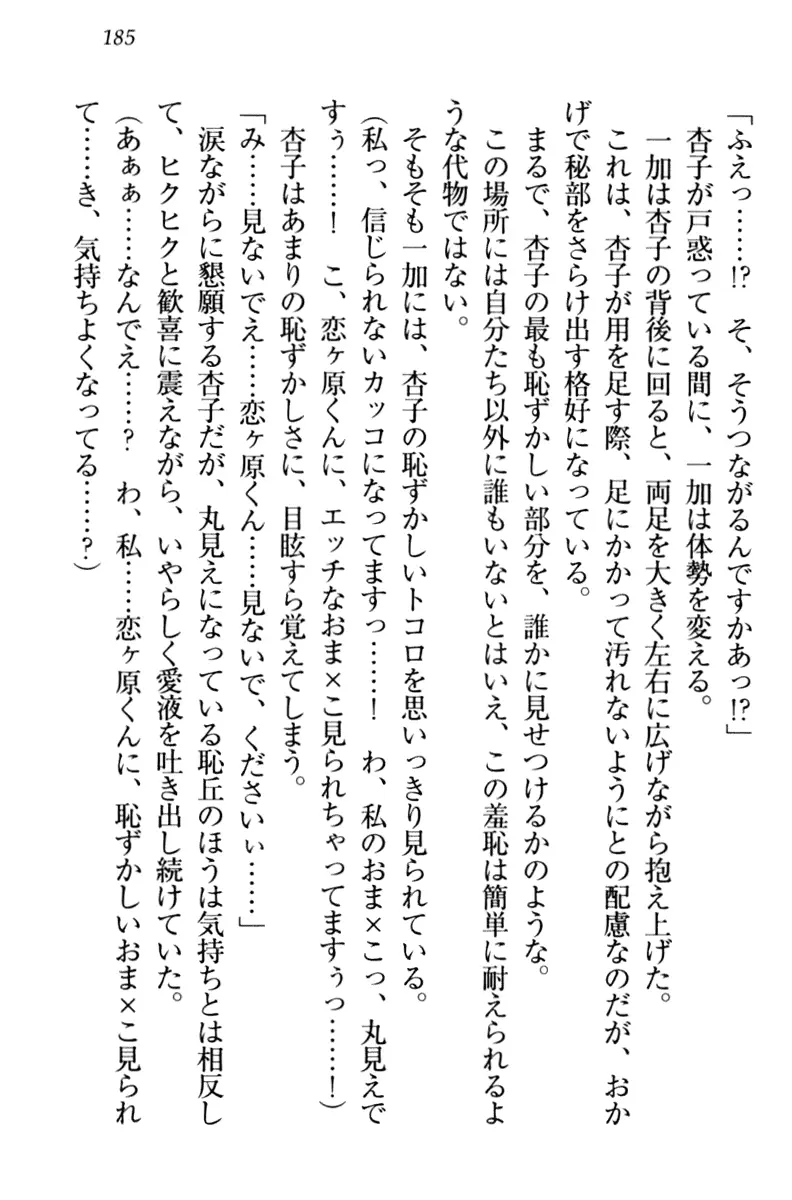 185
「ふえっ……!?　そ、そうつながるんですかあっ!?」
杏子が戸惑っている間に、一加は体勢を変える。
一加は杏子の背後に回ると、両足を大きく左右に広げながら抱え上げた。
これは、杏子が用を足す際、足にかかって汚れないようにとの配慮なのだが、おか
げで秘部をさらけ出す格好になっている。
まるで、杏子の最も恥ずかしい部分を、誰かに見せつけるかのような。
この場所には自分たち以外に誰もいないとはいえ、この羞恥は簡単に耐えられるよ
うな代物ではない。
そもそも一加には、杏子の恥ずかしいトコロを思いっきり見られている。
（私っ、信じられないカッコになってますっ……！　わ、私のおま×こっ、丸見えで
すぅ……！　こ、恋ヶ原くんに、エッチなおま×こ見られちゃってますぅっ……！）
杏子はあまりの恥ずかしさに、目眩すら覚えてしまう。
「み……見ないでえ……恋ヶ原くん……見ないで、くださいぃ……」
涙ながらに懇願する杏子だが、丸見えになっている恥丘のほうは気持ちとは相反し
て、ヒクヒクと歓喜に震えながら、いやらしく愛液を吐き出し続けていた。
（あぁぁ……なんでえ……？　わ、私……恋ヶ原くんに、恥ずかしいおま×こ見られ
て……き、気持ちよくなってる……？）